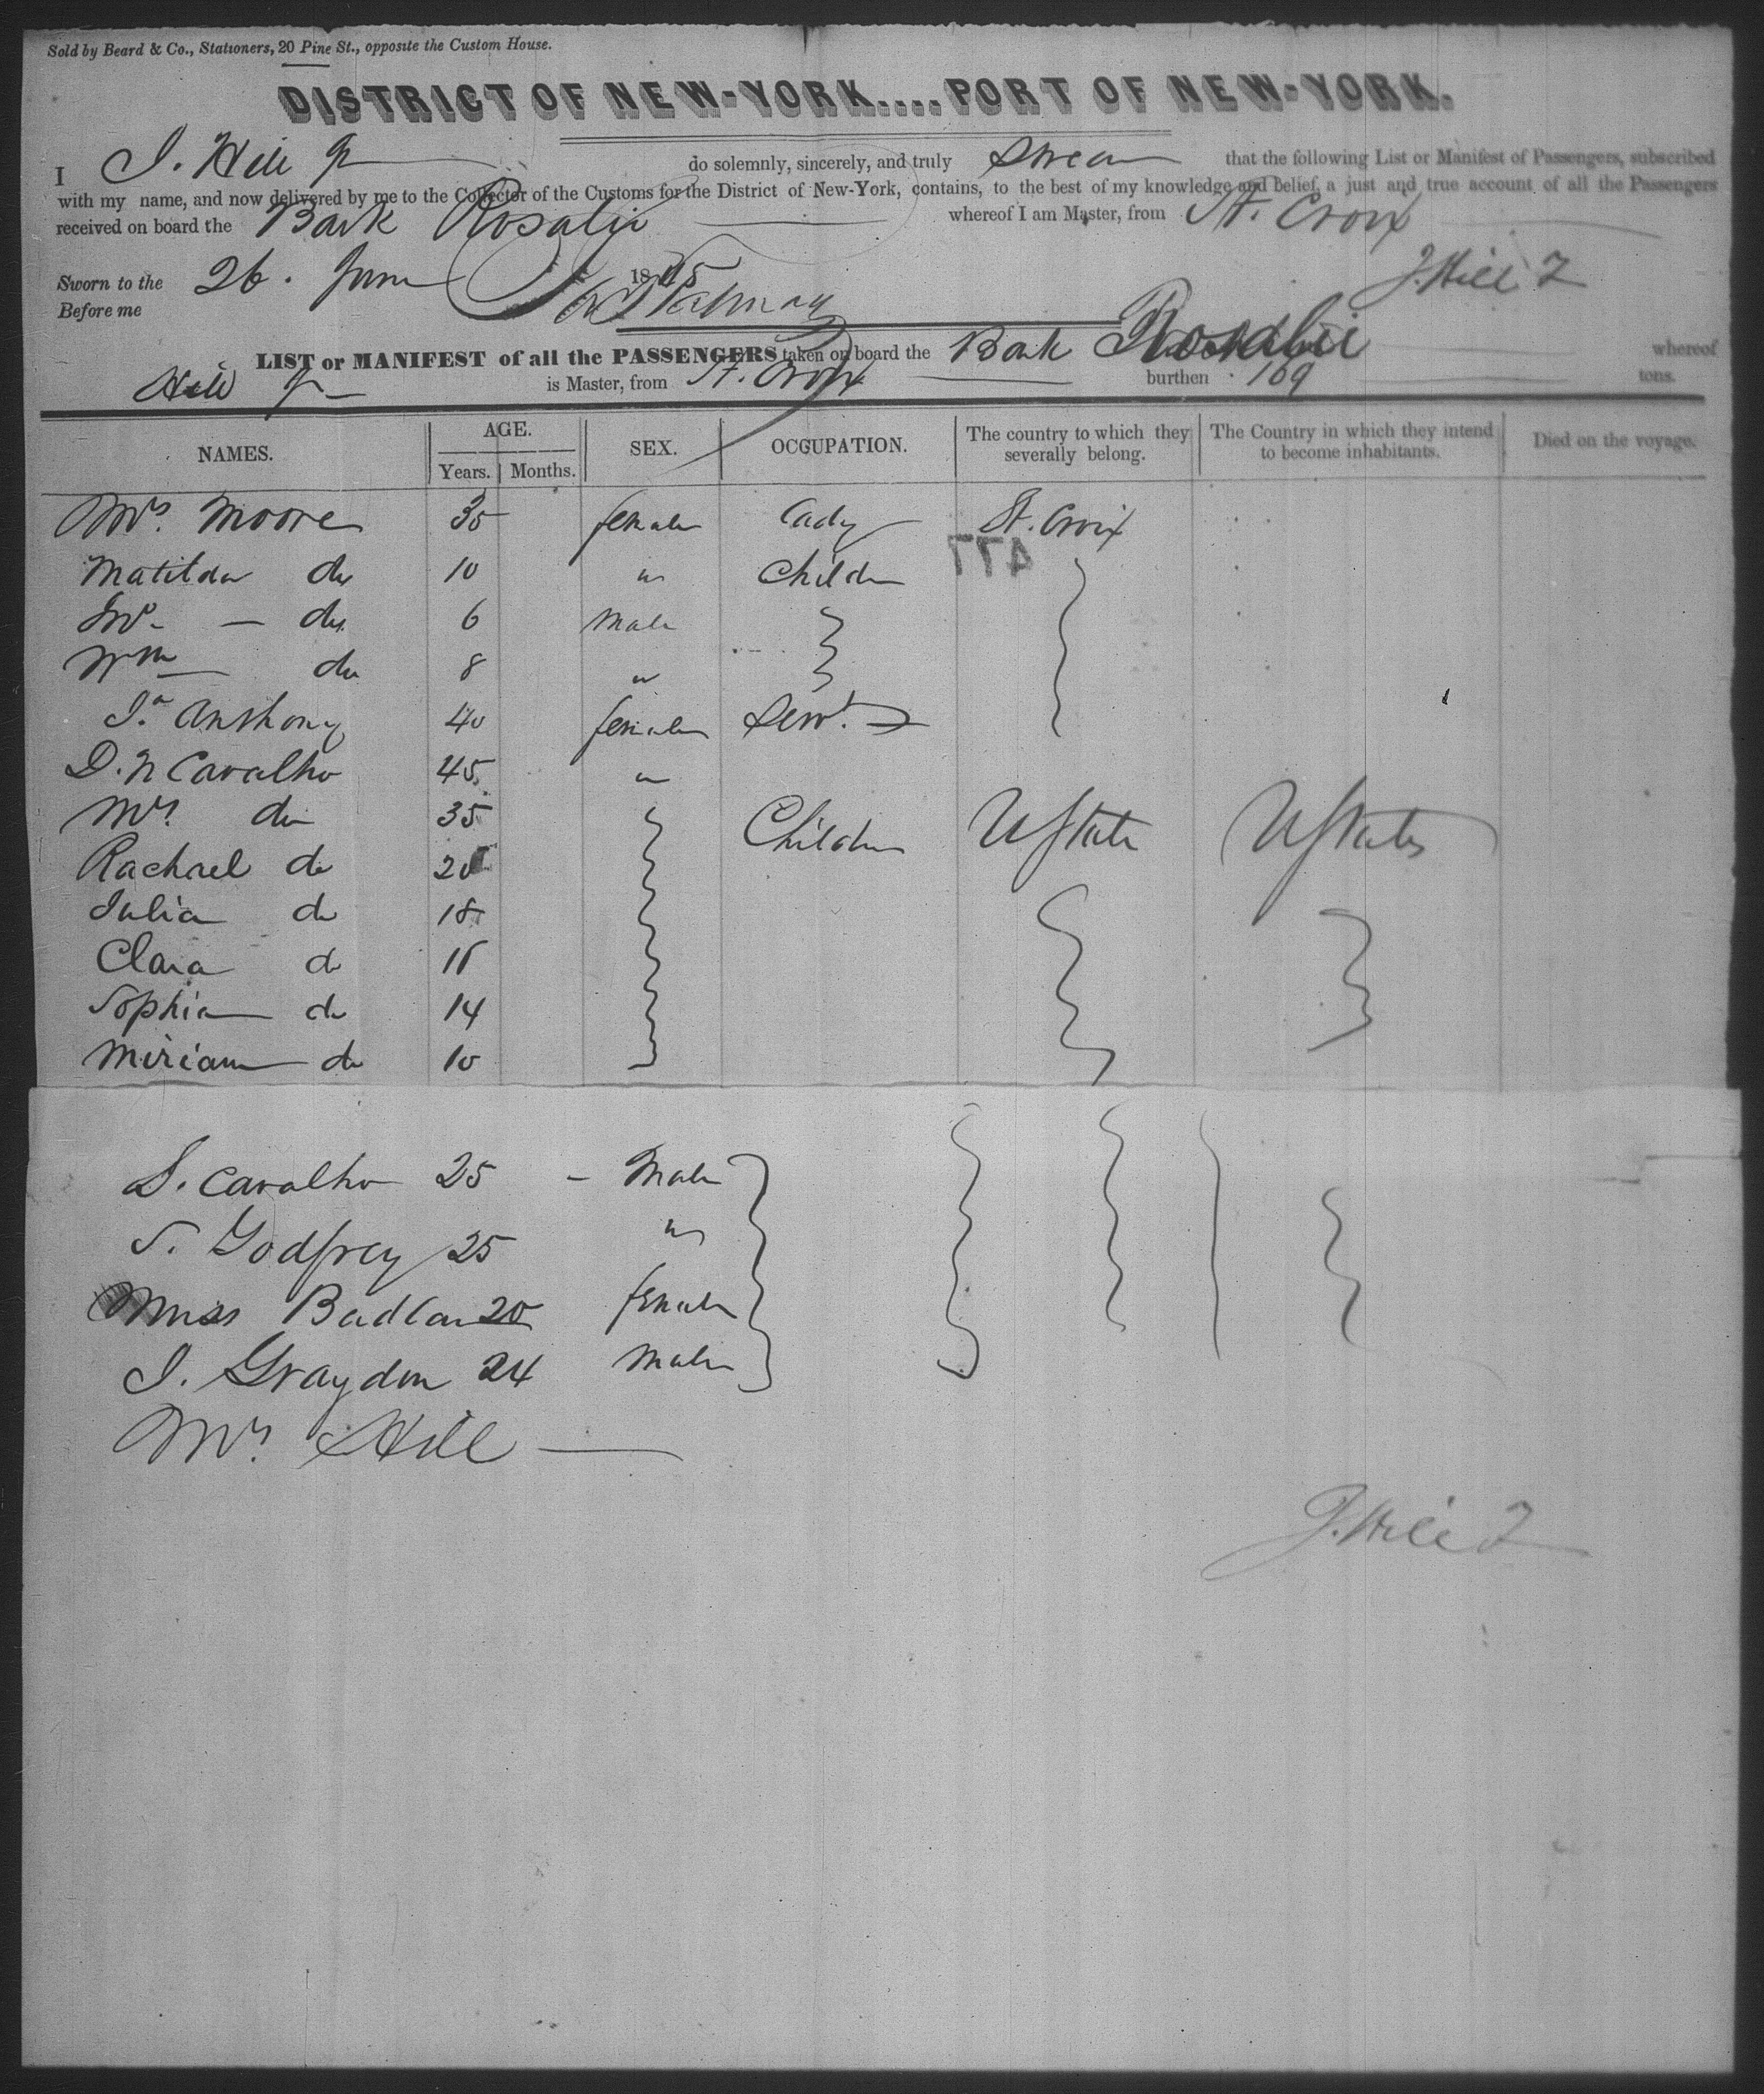 Sold by Beard & Co., Stationers, 20 Pine St., opposite the Custom House.
DISTRICT OF NEW-YORK....PORT OF NEW-YORK.
I J. Hill Jr do solemnly, sincerely, and truly swear that the following List or Manifest of Passengers, subscribed
with my name, and now delivered by me to the Collector of the Customs for the District of New-York, contains, to the best of my knowledge and belief, a just and true account of all the Passengers
received on board the Bark Rosalie whereof I am Master, from St. Croix
Sworn to the 26. June 1845 J. Hill Jr
Before me
LIST or MANIFEST of all the PASSENGERS taken on board the Bark Rosalie whereof
Hill Jr is Master, from St. Croix burthen 169 tons.
NAMES. AGE. Years. Months. SEX. OCCUPATION. The country to which they severally belong. The Country in which they intend to become inhabitants. Died on the voyage.
Mrs. Moore 35 female Lady St. Croix
477
Matilda do 10 " Children
Jno - do 6 Male
Wm do 8 "
Anthony 40 female Servt.
D. N Carvalho 45 "
Mrs. do 35 Children UStates UStates
Rachael do 20
Julia do 18
Clara do 16
Sophia do 14
Miriam do 10
S. Carvalho 25 - Male
S. Godfrey 25 "
Miss 20 female
J. Graydon 24 Male
Mrs. Hill
J. Hill Jr